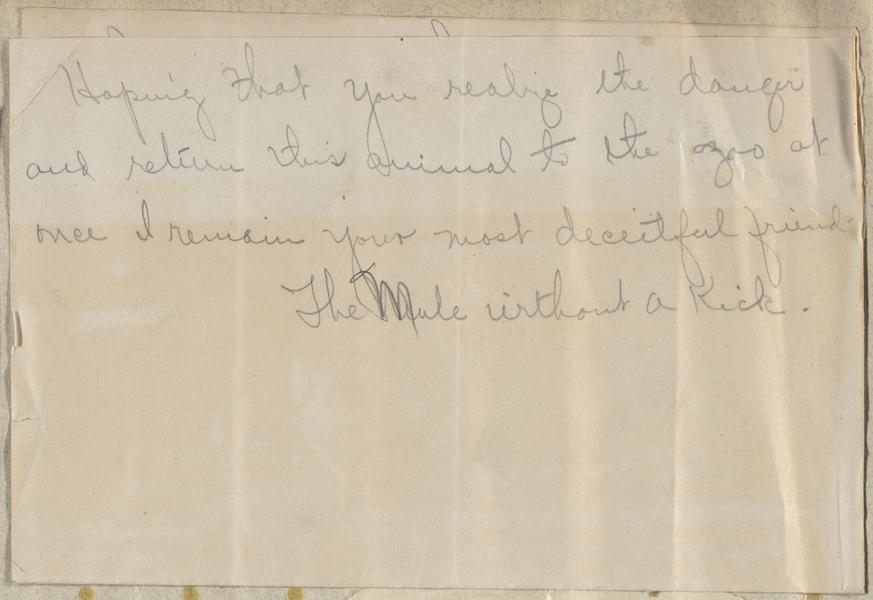 Hoping that you realize the danger
and return this animal to the zoo at
once I remain your most deceitful friend-
The Mule without a Kick.